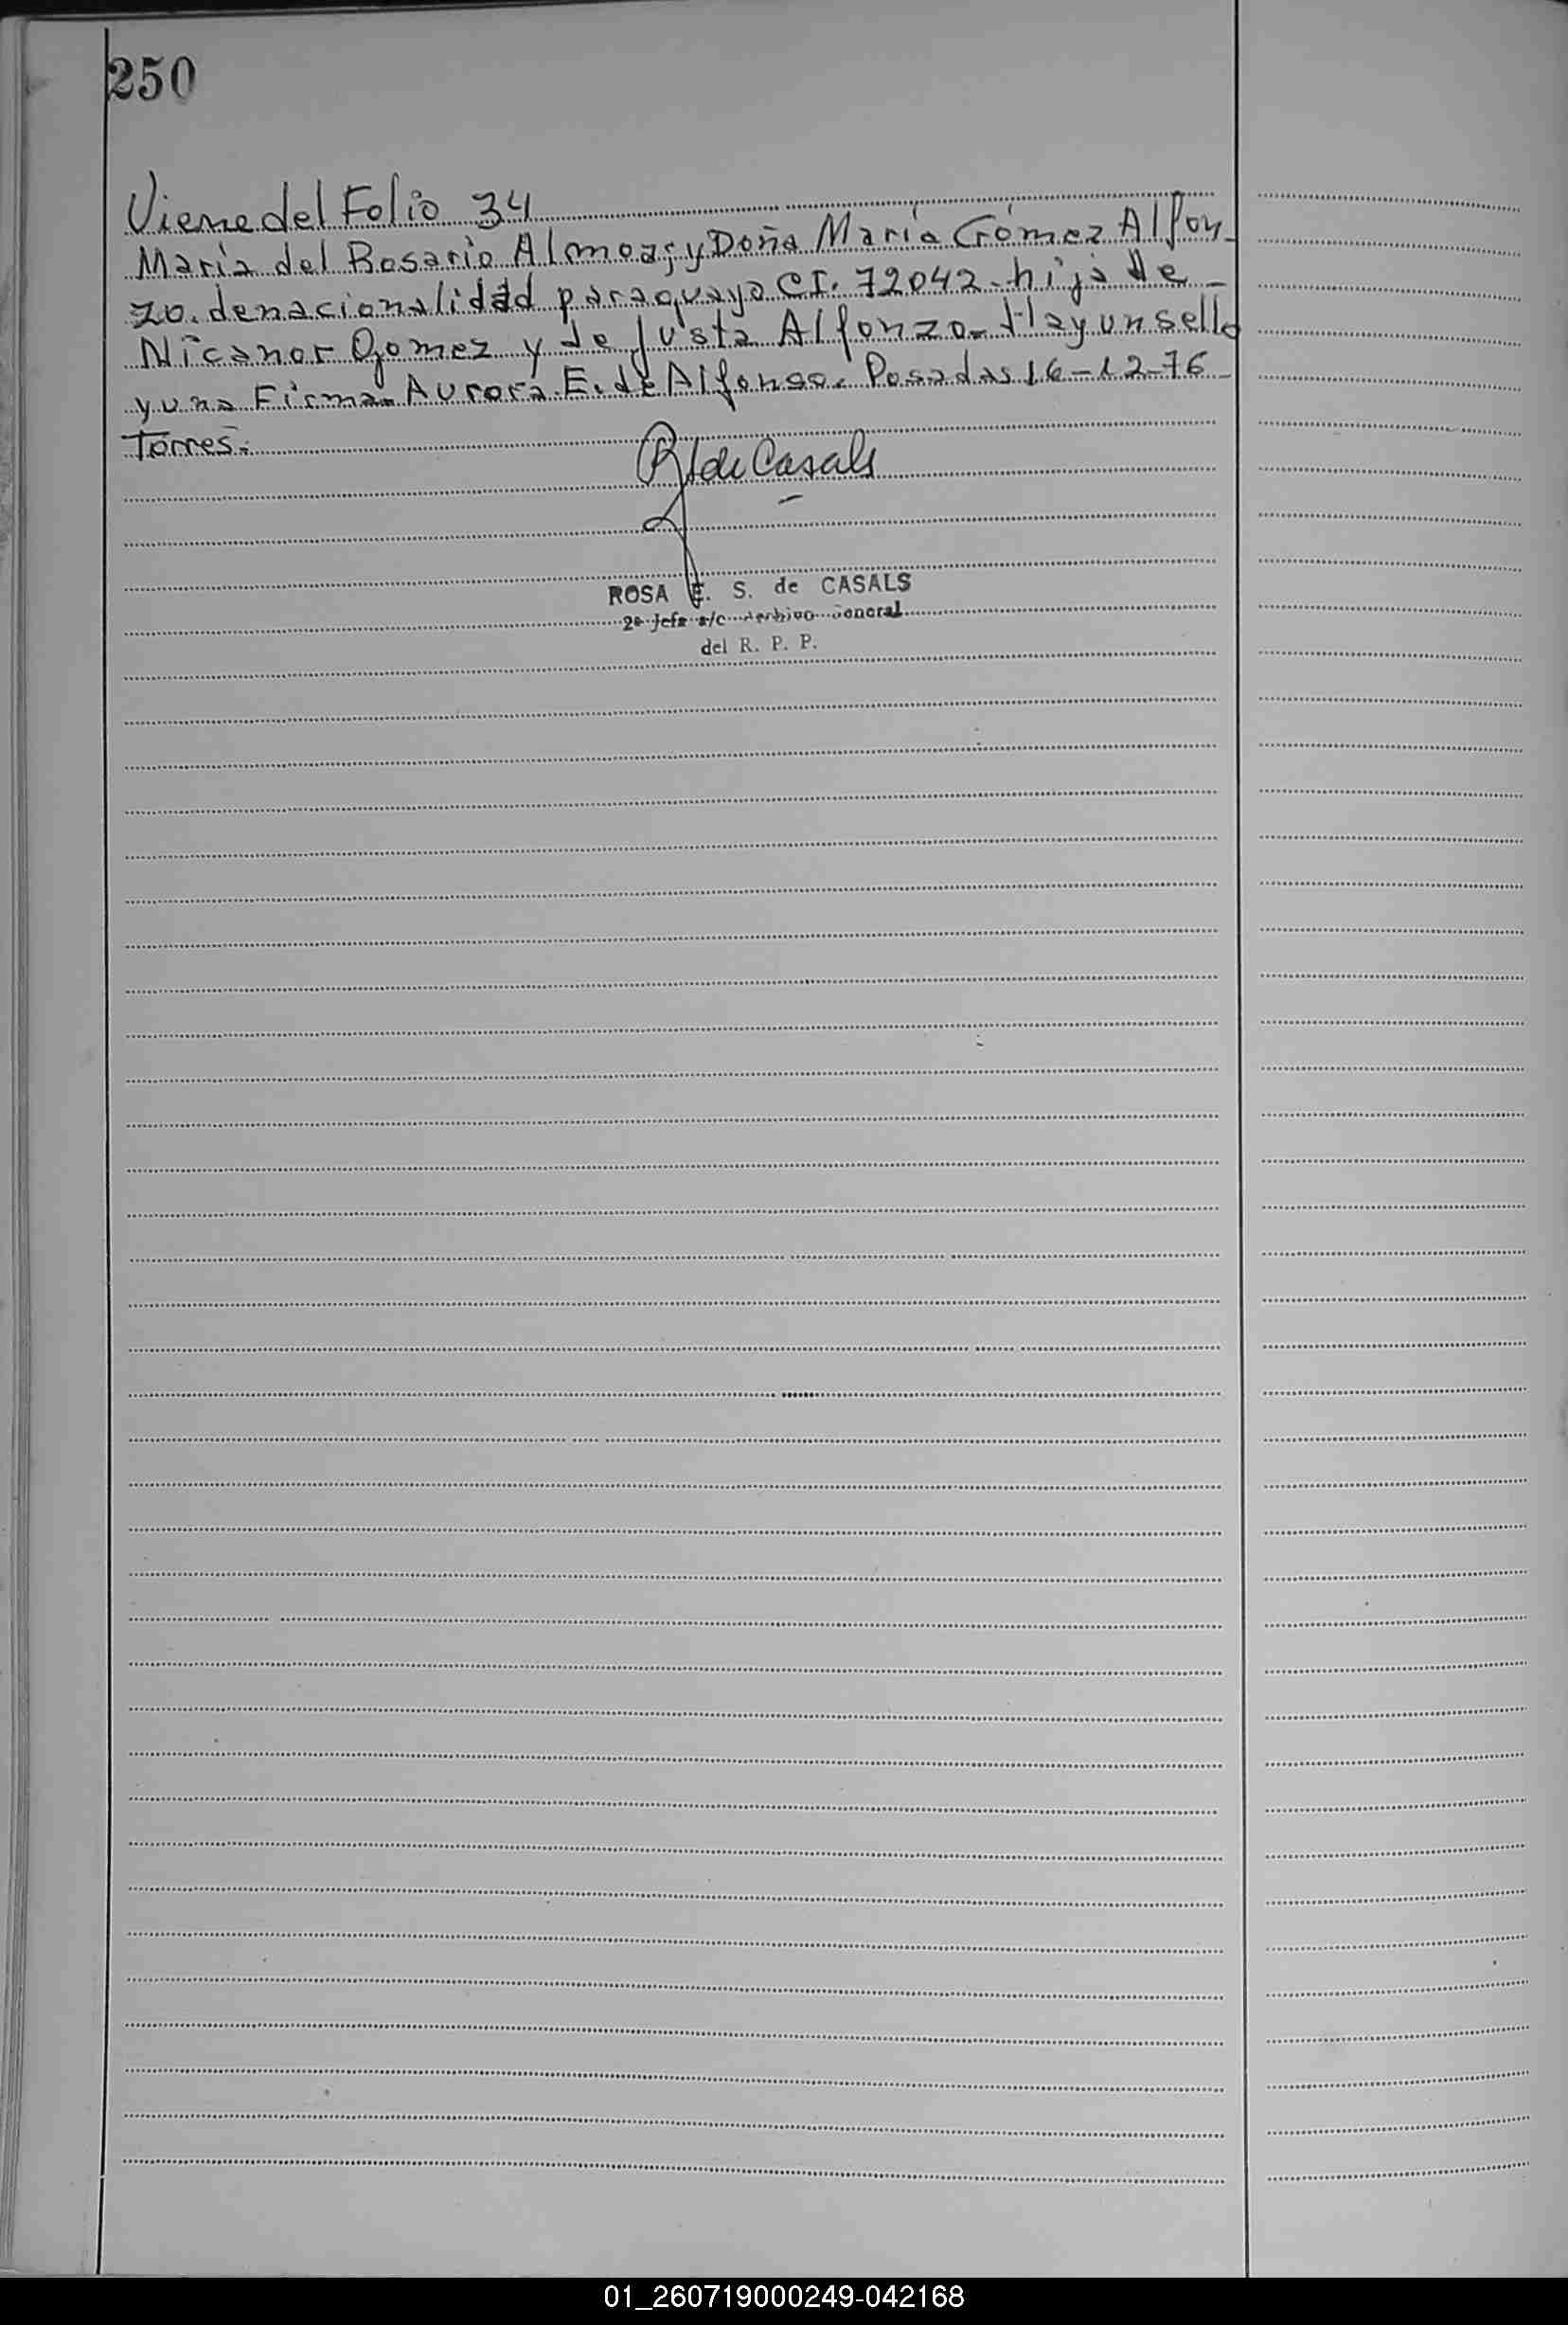 250
Viene del Folio 34
María del Rosario Almoa; y Doña María Gómez Alfon-
zo. de nacionalidad paraguaya CI. 72042. hija de -
Nicanor Gomez y de Justa Alfonzo. Hay un sello
y una Firma. Aurora. E. de Alfonso. Posadas 16-12-76-
Torres.
R de Casals
ROSA E. S. de CASALS
2ª Jefe a/c Archivo General
del R. P. P.
01_260719000249-042168